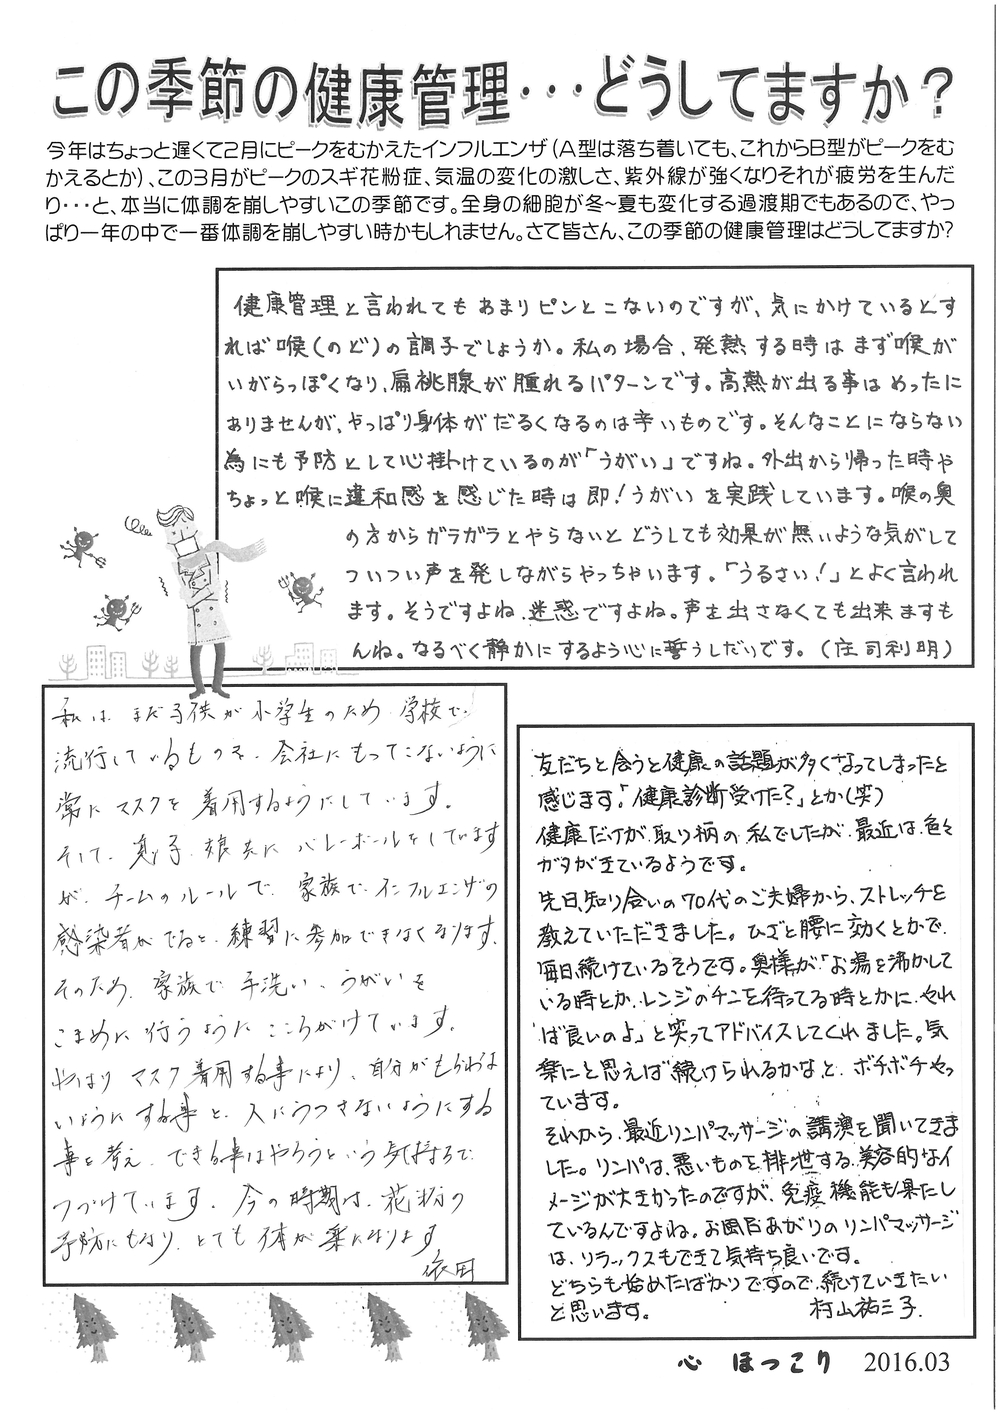 この季節の健康管理・・・どうしてますか？
今年はちょっと遅くて2月にピークをむかえたインフルエンザ(A型は落ち着いても、これからB型がピークをむ
かえるとか)、この3月がピークのスギ花粉症、気温の変化の激しさ、紫外線が強くなりそれが疲労を生んだ
り・・・と、本当に体調を崩しやすいこの季節です。全身の細胞が冬～夏も変化する過渡期でもあるので、やっ
ぱり一年の中で一番体調を崩しやすい時かもしれません。さて皆さん、この季節の健康管理はどうしてますか?
健康管理と言われてもあまりピンとこないのですが、気にかけているとす
れば喉(のど)の調子でしょうか。私の場合、発熱する時はまず喉が
いがらっぽくなり、扁桃腺が腫れるパターンです。高熱が出る事はめったに
ありませんが、やっぱり身体がだるくなるのは辛いものです。そんなことにならない
為にも予防として心掛けているのが「うがい」ですね。外出から帰った時や
ちょっと喉に違和感を感じた時は即!うがいを実践しています。喉の奥
の方からガラガラとやらないとどうしても効果が無いような気がして
ついつい声を発しながらやっちゃいます。「うるさい!」とよく言われ
ます。そうですよね、迷惑ですよね。声を出さなくても出来ますも
んね。なるべく静かにするよう心に誓うしだいです。(庄司利明)
私は、まだ子供が小学生のため、学校で、
流行しているものを、会社にもってこないように
常にマスクを着用するようにしています。
そして、息子、娘共にバレーボールをしています
が、チームのルールで、家族で、インフルエンザの
感染者がでると、練習に参加できなくなります。
そのため、家族で手洗い、うがいを
こまめに行うようにこころがけています。
やはりマスク着用する事により、自分がもらわな
いようにする事と、人にうつさないようにする
事を考え、できる事はやろうという気持ちで
つづけています。今の時期は、花粉の
予防にもなり、とても体が楽になります
依田
友だちと会うと健康の話題が多くなってしまったと
感じます。「健康診断受けた?」とか(笑)
健康だけが取り柄の私でしたが、最近は、色々
ガタがきているようです。
先日、知り合いの70代のご夫婦から、ストレッチを
教えていただきました。ひざと腰に効くとかで、
毎日続けているそうです。奥様が「お湯を沸かして
いる時とか、レンジのチンを待ってる時とかに、やれ
ば良いのよ」と笑ってアドバイスしてくれました。気
楽にと思えば続けられるかなと、ボチボチやっ
ています。
それから、最近リンパマッサージの講演を聞いてきま
した。リンパは、悪いものを排泄する、美容的なイ
メージが大きかったのですが、免疫機能も果たし
ているんですよね。お風呂あがりのリンパマッサージ
は、リラックスもできて気持ち良いです。
どちらも始めたばかりですので、続けていきたい
と思います。 村山祐三子.
心 ほっこり 2016.03